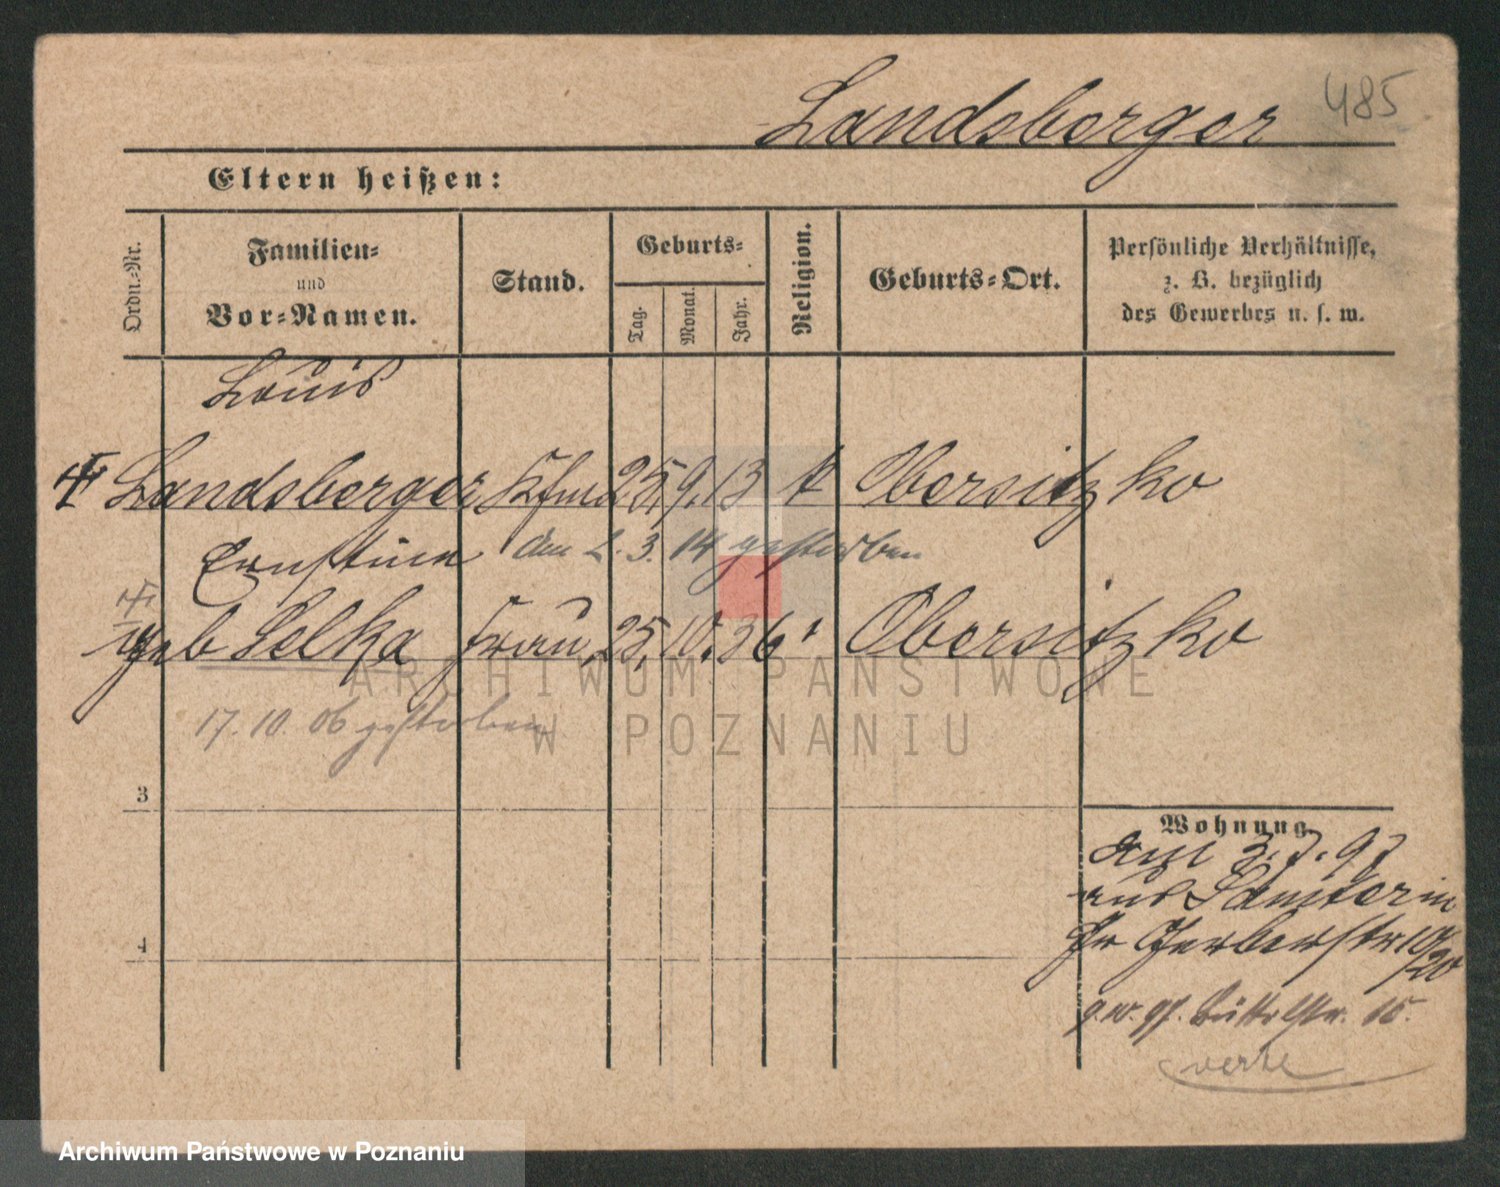 Landsberger 485
Eltern heißen:
Ordn.-Nr.
Familien-
und
Vor-Namen.
Stand.
Geburts-
Tag.
Monat.
Jahr.
Religion.
Geburts-Ort.
Persönliche Verhältnisse,
z. B. bezüglich
des Gewerbes u. s. w.
Louis
Landsberger Kfm 25. 9. 13 Obersitzko
Ernstine den 2. 3. 14 gestorben
geb Selka Frau 25. 10. 36 Obersitzko
17. 10. 06 gestorben
ARCHIWUM PAŃSTWOWE
W POZNANIU
3
Wohnung
am 3. 7. 97
aus Samter in
Gr Gerberstr 19/20
4
15.
verte
Archiwum Państwowe w Poznaniu